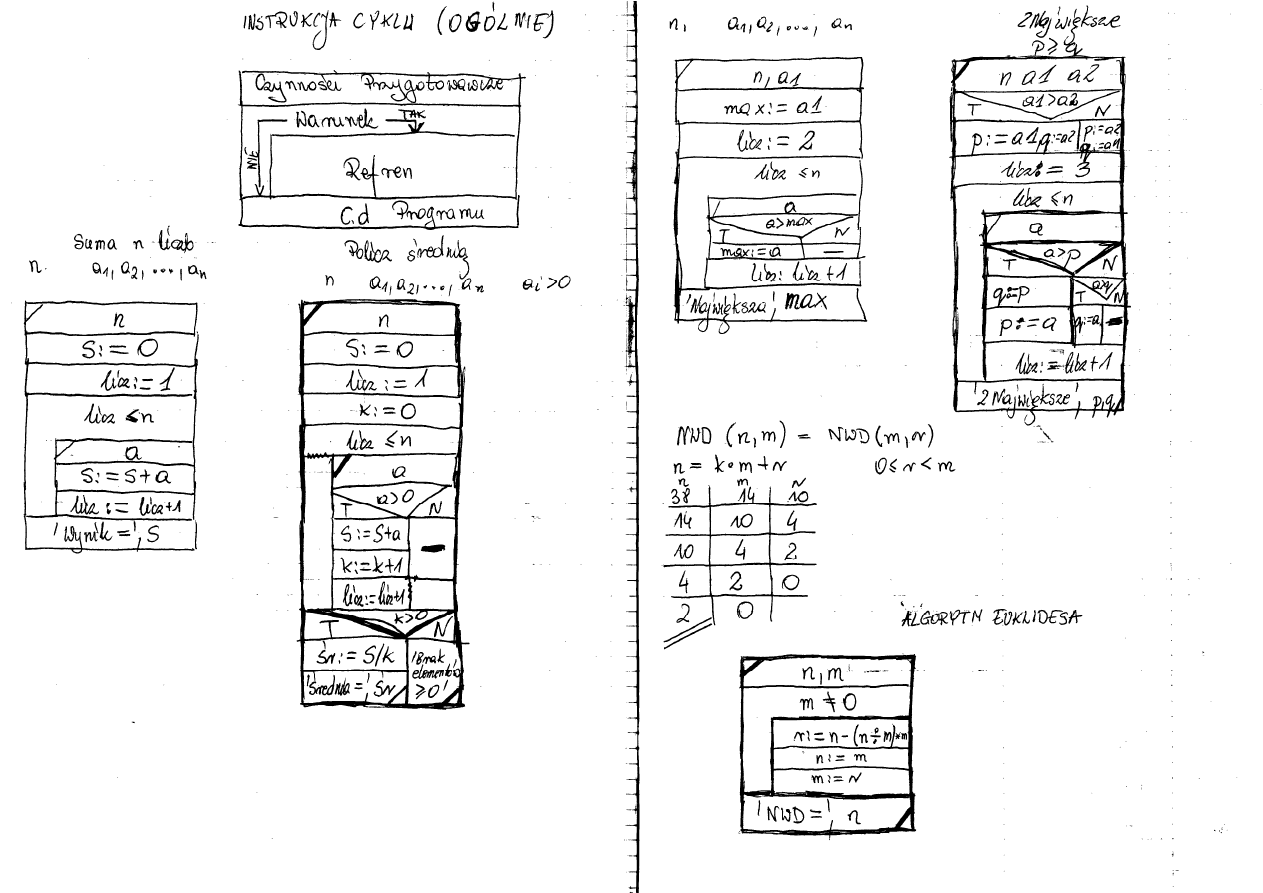 INSTRUKCJA CYKLU (OGÓLNIE)
Czynności Przygotowawcze
Warunek TAK
NIE
Refren
C.d Programu
Suma n liczb
n. a1, a2, ..., an
n
S:= 0
licz:= 1
licz ≤ n
a
S:= S+a
licz:= licz+1
'Wynik =', S
Policz średnią
n a1, a2, ..., an ai>0
n
S:= 0
licz:= 1
k:= 0
licz ≤ n
a
a>0
T N
S:= S+a
k:= k+1
licz:= licz+1
k>0
T N
śr:= S/k
'Średnia =', śr
'Brak
elementów
≥0'
n, a1, a2, ..., an
n, a1
max:= a1
licz:= 2
licz ≤ n
a
a>max
T N
max:= a —
licz: licz+1
'Największa', max
2 Największe
p ≥ q
n a1 a2
a1>a2
T N
p:= a1 q:=a2 p:=a2
q:=a1
licz:= 3
licz ≤ n
a
a>p
T N
q:=p
p:= a
a>q
T N
q:=a -
licz:= licz+1
'2 Największe', p,q
NWD (n,m) = NWD(m,r)
n = k•m+r 0≤r<m
n m r
38 14 10
14 10 4
10 4 2
4 2 0
2 0
ALGORYTM EUKLIDESA
n, m
m ≠ 0
r:= n-(n÷m)*m
n:= m
m:= r
'NWD=', n